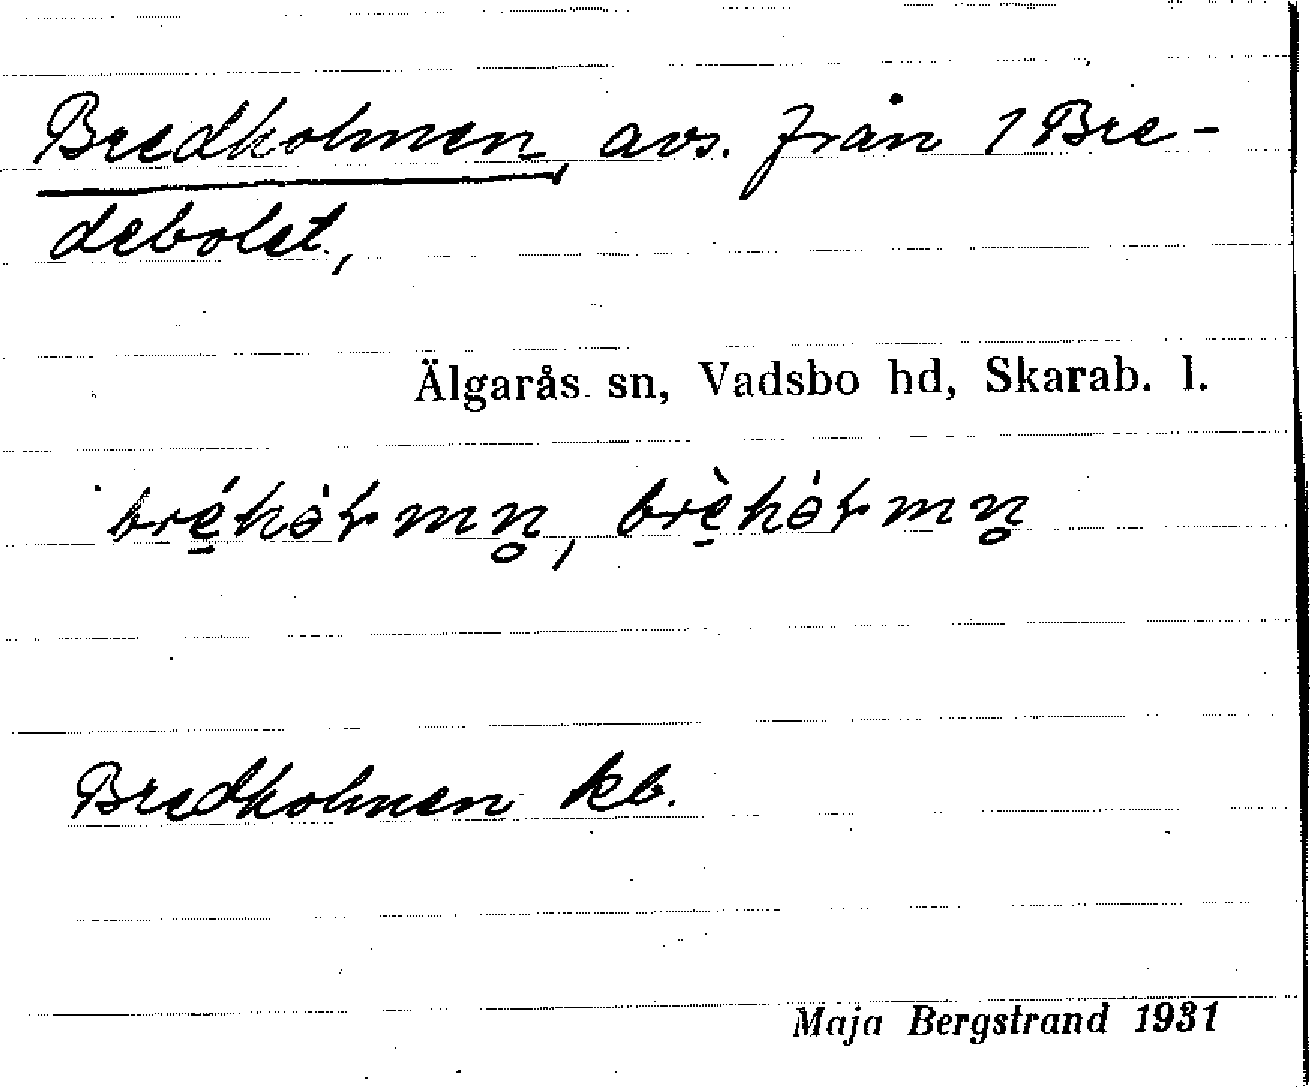 Bredkolmen, avs. från 1 Bre-
debolet,
Älgarås sn, Vadsbo hd, Skarab. l.
Bredkolmen kb.
Maja Bergstrand 1931